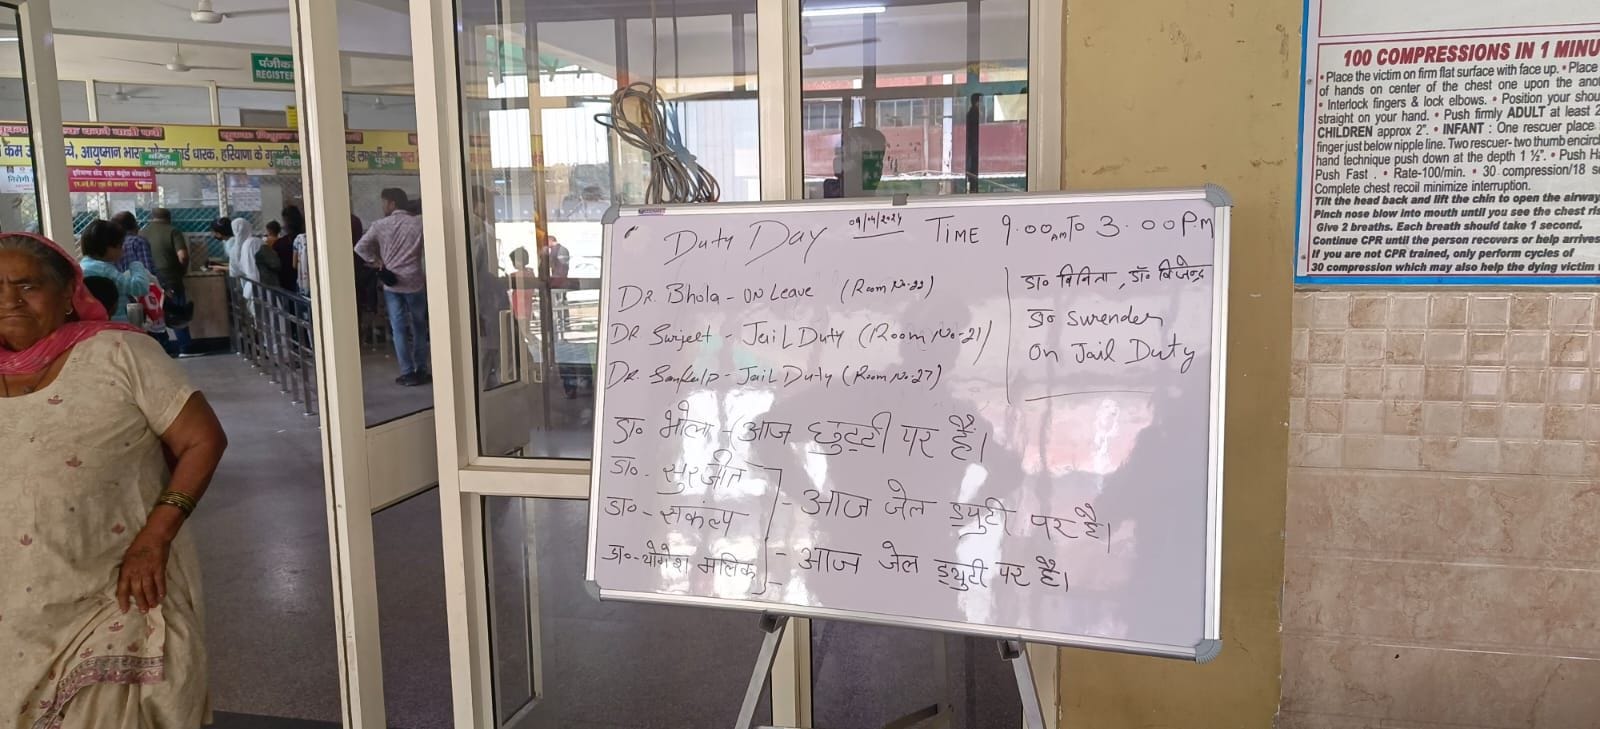 पंजीक
REGISTER
आयुष्मान भारत
धारक, हरियाणा के
महिला
पुरूष
Duty Day 09/04/2024 TIME 9.00 AM TO 3.00 P.M
DR. Bhola - ON Leave (Room No-22)
DR. Surjeet - Jail Duty (Room No-21)
DR. Sankalp - Jail Duty (Room No-27)
डा० विनिता, डॉ० विजेन्द्र
डा० Surender
On Jail Duty
डा० भोला - आज छुट्टी पर हैं।
डा०- सुरजीत
डा०- सकंल्प - आज जेल ड्युटी पर है।
डा०- योगेश मलिक - आज जेल ड्युटी पर है।
100 COMPRESSIONS IN 1 MINU
• Place the victim on firm flat surface with face up. • Place
of hands on center of the chest one upon the ano
• Interlock fingers & lock elbows. • Position your shou
straight on your hand. • Push firmly ADULT at least 2
CHILDREN approx 2". • INFANT : One rescuer place
finger just below nipple line. Two rescuer- two thumb encircl
hand technique push down at the depth 1 ½". • Push Ha
Push Fast . • Rate-100/min. • 30 compression/18 se
Complete chest recoil minimize interruption.
Tilt the head back and lift the chin to open the airway
Pinch nose blow into mouth until you see the chest ris
Give 2 breaths. Each breath should take 1 second.
Continue CPR until the person recovers or help arrives
If you are not CPR trained, only perform cycles of
30 compression which may also help the dying victim